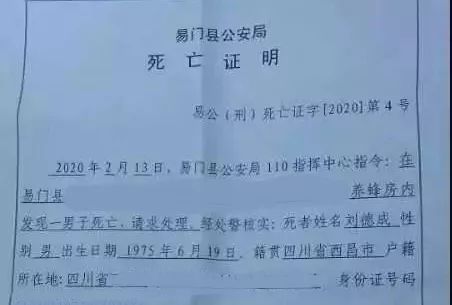 易门县公安局
死亡证明
易公(刑)死亡证字[2020]第4号
2020年2月13日,易门县公安局110指挥中心指令:在
易门县 养蜂房内
发现一男子死亡,请求处理。经处警核实:死者姓名刘德成 性
别 男 出生日期 1975年6月19日, 籍贯四川省西昌市 户籍
所在地:四川省 身份证号码